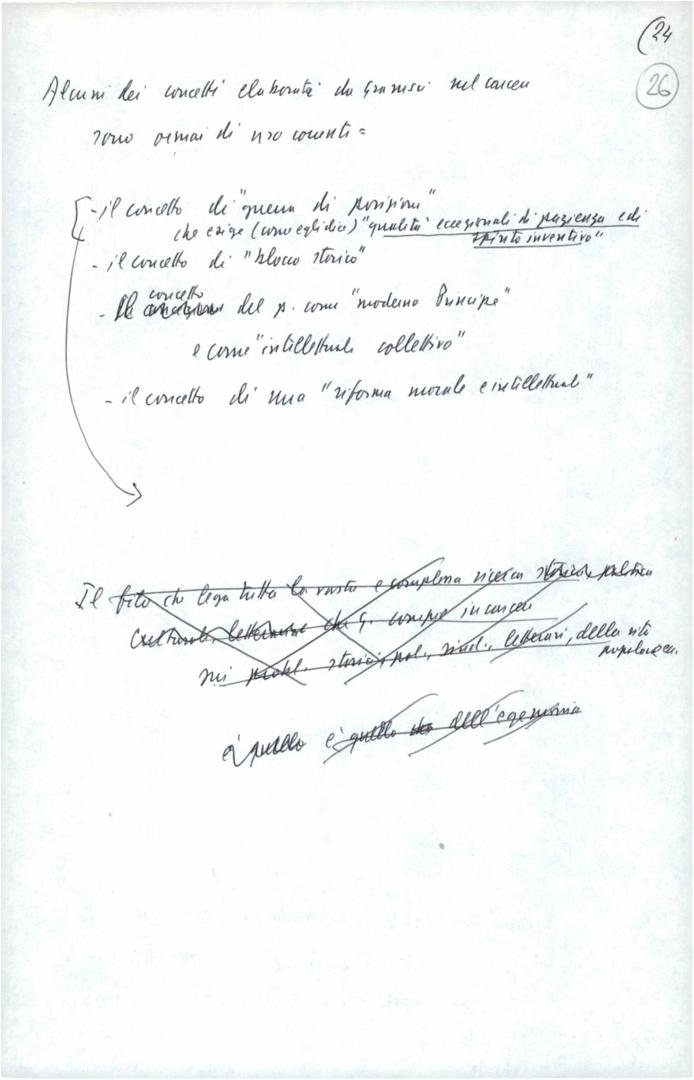 (24
26
Alcuni dei concetti elaborati da Gramsci nel carcere
sono ormai di uso corrente:
- il concetto di "guerra di posizione"
che esige (come egli dice) "qualità eccezionali di pazienza e di
spirito inventivo"
- il concetto di "blocco storico"
concetto
- Il del p. come "moderno Principe"
e come "intellettuale collettivo"
- il concetto di una "riforma morale e intellettuale"
Il filo che lega tutta la vasta e complessa ricerca storica, politica
culturale, letteraria che G. compie in carcere
sui probl. storici, pol., letterari, della vita
popolare ecc.
è quello è quello dell'egemonia